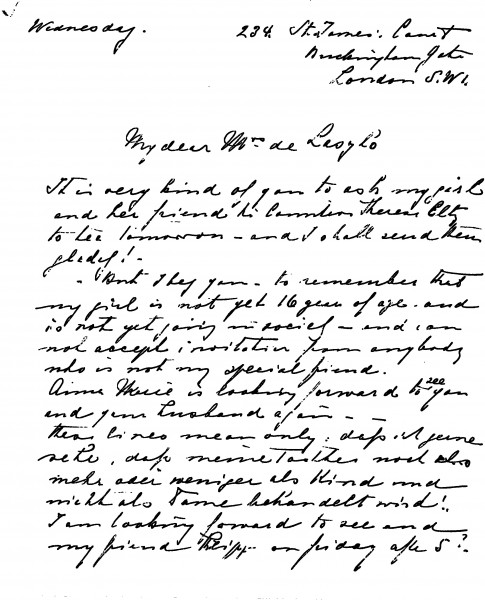 Wednesday.
234. St. James' Court
Buckingham Gate
London S.W.1.
My dear Mrs de Laszló
It is very kind of you to ask my girl
and her friend the Countess Therese Eltz
to tea tomorrow – and I shall send them
gladly! –
– But I beg you – to remember that
my girl is not yet 16 years of age – and
is not yet going in society – and can
not accept invitation from anybody
who is not my special friend.
Anne Marie is looking forward to see you
and your husband again – –
these lines mean only: daß ich gerne
sehe, daß meine Tochter noch
mehr oder weniger als Kind und
nicht als Dame behandelt wird!.
I am looking forward to see and
my friend on friday after 5?.